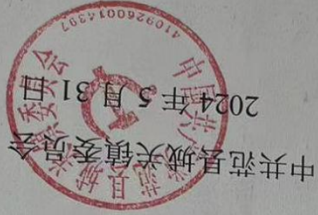 中共范县城关镇委员会
2024年5月31日
中国共产党范县城关镇委员会
4109260014397